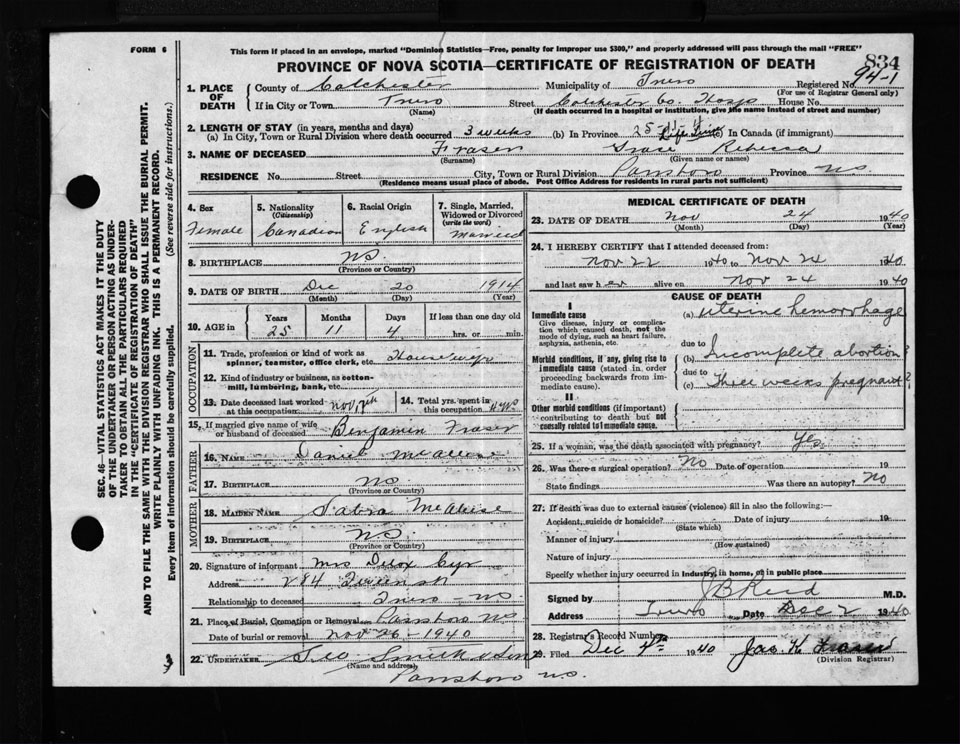 FORM 6
This form if placed in an envelope, marked "Dominion Statistics—Free, penalty for improper use $300," and properly addressed will pass through the mail "FREE"
834
PROVINCE OF NOVA SCOTIA—CERTIFICATE OF REGISTRATION OF DEATH
94-1
1. PLACE OF DEATH County of Colchester Municipality of Truro Registered No.
(For use of Registrar General only)
If in City or Town Truro Street Colchester Co. Hosp House No.
(Name) (If death occurred in a hospital or institution, give the name instead of street and number)
2. LENGTH OF STAY (in years, months and days)
(a) In City, Town or Rural Division where death occurred 3 weeks (b) In Province 25-11-4 Life time In Canada (if immigrant)
3. NAME OF DECEASED Fraser Grace Rebecca
(Surname) (Given name or names)
RESIDENCE No. Street City, Town or Rural Division Parrsboro Province NS.
(Residence means usual place of abode. Post Office Address for residents in rural parts not sufficient)
4. Sex Female
5. Nationality (Citizenship) Canadian
6. Racial Origin English
7. Single, Married, Widowed or Divorced (write the word) Married
8. BIRTHPLACE NS.
(Province or Country)
9. DATE OF BIRTH Dec 20 1914
(Month) (Day) (Year)
10. AGE in Years Months Days If less than one day old
25 11 4 hrs. or min.
OCCUPATION
11. Trade, profession or kind of work as spinner, teamster, office clerk, etc. Housewife
12. Kind of industry or business, as cotton-mill, lumbering, bank, etc.
13. Date deceased last worked at this occupation Nov 17th
14. Total yrs. spent in this occupation
15. If married give name of wife or husband of deceased Benjamin Fraser
FATHER
16. NAME Daniel
17. BIRTHPLACE NS
(Province or Country)
MOTHER
18. MAIDEN NAME
19. BIRTHPLACE NS
(Province or Country)
20. Signature of informant Mrs Cyr
Address 284
Relationship to deceased Truro - NS.
21. Place of Burial, Cremation or Removal Parrsboro NS
Date of burial or removal Nov 26 - 1940
22. UNDERTAKER Geo Smith & Son
(Name and address)
Parrsboro NS.
MEDICAL CERTIFICATE OF DEATH
23. DATE OF DEATH Nov 24 1940
(Month) (Day) (Year)
24. I HEREBY CERTIFY that I attended deceased from:
Nov 22 1940 to Nov 24 1940
and last saw her alive on Nov 24 1940
CAUSE OF DEATH
I
Immediate cause (a) Uterine hemorrhage
Give disease, injury or complication which caused death, not the mode of dying, such as heart failure, asphyxia, asthenia, etc.
due to
Morbid conditions, if any, giving rise to immediate cause (stated in order proceeding backwards from immediate cause).
(b) Incomplete abortion?
due to
(c) Three weeks pregnant?
II
Other morbid conditions (if important) contributing to death but not causally related to immediate cause.
25. If a woman, was the death associated with pregnancy? Yes
26. Was there a surgical operation? No Date of operation 19
State findings Was there an autopsy? No
27. If death was due to external causes (violence) fill in also the following:—
Accident, suicide or homicide? Date of injury 19
(State which)
Manner of injury
(How sustained)
Nature of injury
Specify whether injury occurred in industry, in home, or in public place
Signed by J B Reid M.D.
Address Truro Date Dec 2 1940
28. Registrar's Record Number
29. Filed Dec 4th 1940 Jas. H. Fraser
(Division Registrar)
SEC. 46—VITAL STATISTICS ACT MAKES IT THE DUTY
OF THE UNDERTAKER OR PERSON ACTING AS UNDER-
TAKER TO OBTAIN ALL THE PARTICULARS REQUIRED
IN THE "CERTIFICATE OF REGISTRATION OF DEATH"
AND TO FILE THE SAME WITH THE DIVISION REGISTRAR WHO SHALL ISSUE THE BURIAL PERMIT.
WRITE PLAINLY WITH UNFADING INK. THIS IS A PERMANENT RECORD.
Every item of information should be carefully supplied. (See reverse side for instructions.)